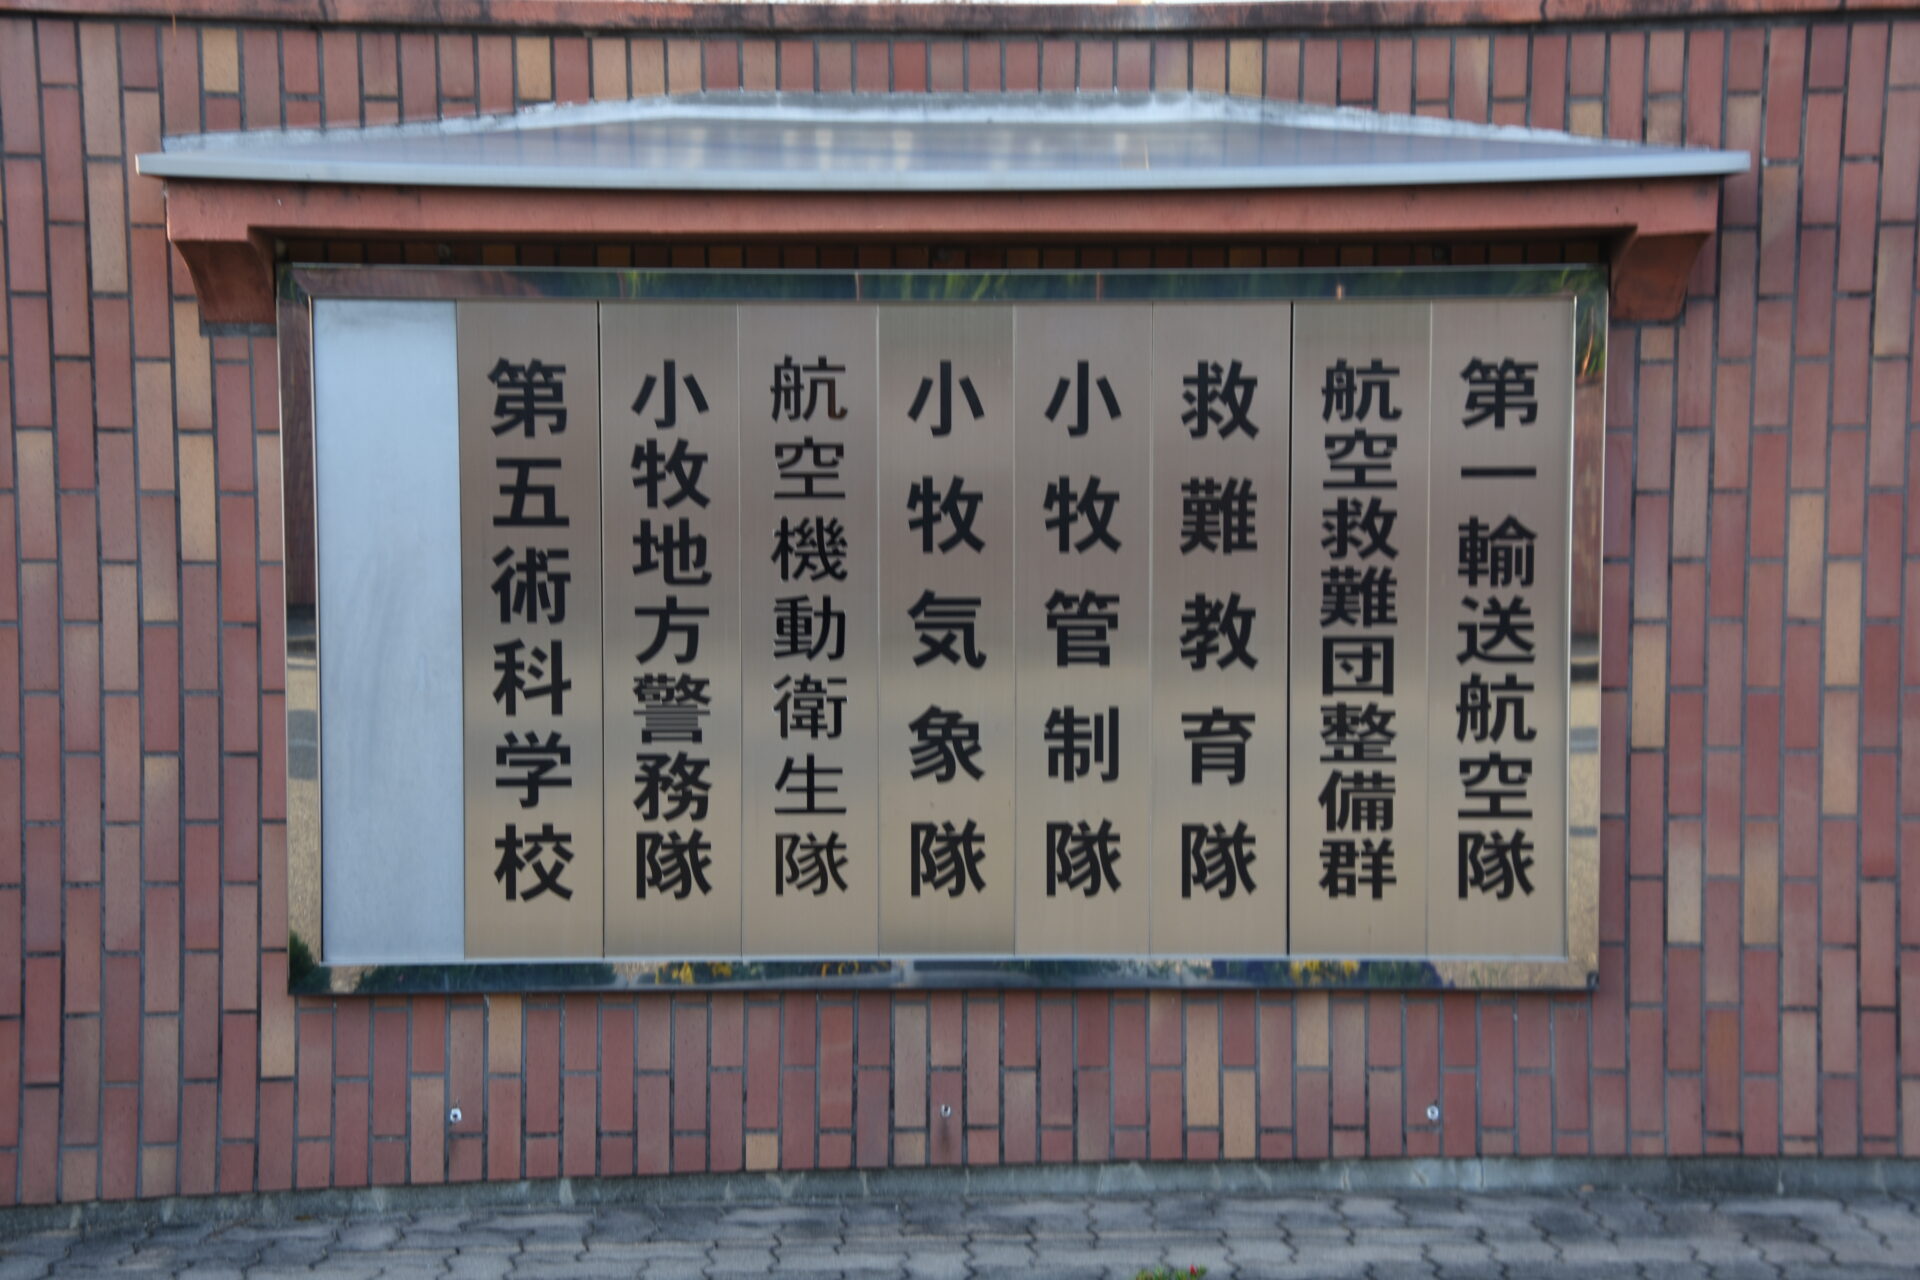 第一輸送航空隊
航空救難団整備群
救難教育隊
小牧管制隊
小牧気象隊
航空機動衛生隊
小牧地方警務隊
第五術科学校